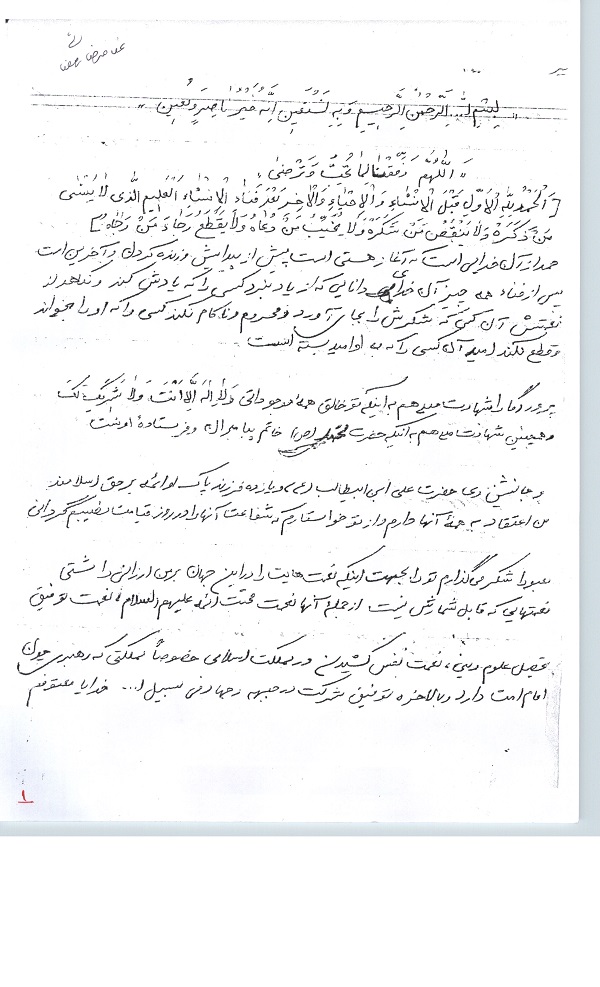 بسم الله الرحمن الرحیم وَبِهِ نَسْتَعین اِنَّهُ خَیرُ ناصِرٍ وَمُعین
"اَللّهُمَّ وَفِّقْنا لِما تُحِبُّ وَ تَرْضی"
[اَلْحَمْدُ لِلّهِ الْاَوَّلِ قَبْلَ الْاِنْشاءِ وَالْاِحْیاءِ وَالْاخِرِ بَعْدَ فَناءِ الْاَشْیاءِ الْعَلیمِ الَّذی لایَنْسی
مَنْ ذَکَرَهُ وَلایَنْقُصُ مَنْ شَکَرَهُ وَلایُخَیِّبُ مَنْ دَعاهُ وَلایَقْطَعُ رَجاءَ مَنْ رَجاهُ]
حمد از آن خدایی است که آغاز هستی است پیش از پیدایش و زنده کردن و آخرین است
پس از فناء همه چیز آن خدای دانایی که از یاد نبرد کسی را که یادش کند و نکاهد از
نعمتش آن کس که شکرش را بجای آورد و محروم و ناکام نکند کسی را که او را بخواند
و قطع نکند امید آن کسی را که به او امید بسته است
پروردگارا شهادت میدهم به اینکه تو خالق همه موجوداتی وَلا اِلهَ اِلّا اَنْتَ وَلا شَریکَ لَکَ
و همچنین شهادت میدهم به اینکه حضرت محمد (ص) خاتم پیامبران و فرستاده اوست
و جانشین وی حضرت علی ابن ابیطالب (ع) و یازده فرزند پاک او ائمه بر حق اسلامند
من اعتقاد به همه آنها دارم و از تو خواستارم که شفاعت آنها را در روز قیامت نصیبم گردانی
معبودا شکر میگذارم تو را بجهت اینکه نعمت هایت را در این جهان بر من ارزانی داشتی
نعمتهایی که قابل شمارش نیست از جمله آنها نعمت محبت ائمه علیهم السلام، نعمت توفیق
تحصیل علوم دینی، نعمت نفس کشیدن در مملکت اسلامی خصوصاً مملکتی که رهبری چون
امام امت دارد و بالاخره توفیق شرکت در جبهه و جهاد فی سبیل ا... خدایا معتقدم
۱